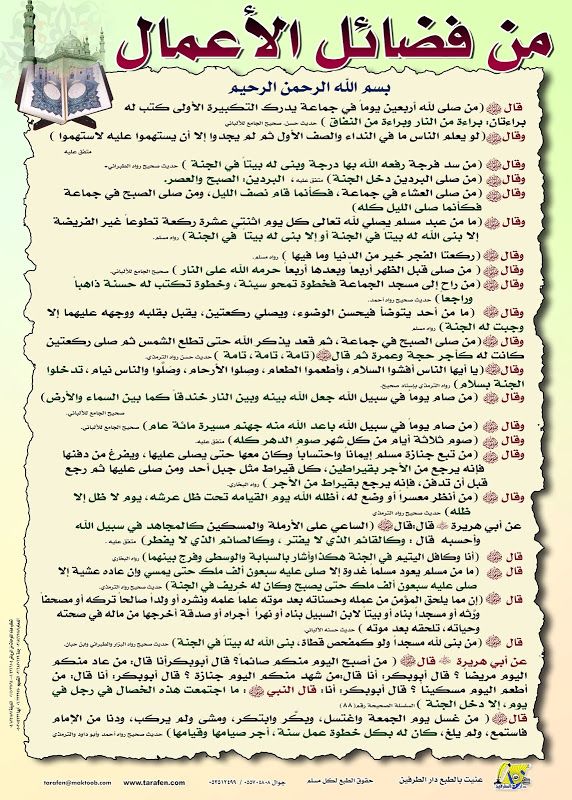 من فضائل الأعمال
بسم الله الرحمن الرحيم
قال ﷺ (من صلى لله أربعين يوماً في جماعة يدرك التكبيرة الأولى كتب له
براءتان: براءة من النار وبراءة من النفاق) حديث حسن. صحيح الجامع للألباني
وقال ﷺ (لو يعلم الناس ما في النداء والصف الأول ثم لم يجدوا إلا أن يستهموا عليه لاستهموا)
متفق عليه
وقال ﷺ (من سد فرجة رفعه الله بها درجة وبنى له بيتاً في الجنة) حديث صحيح رواه الطبراني.
وقال ﷺ (من صلى البردين دخل الجنة) متفق عليه، البردين: الصبح والعصر.
وقال ﷺ (من صلى العشاء في جماعة، فكأنما قام نصف الليل، ومن صلى الصبح في جماعة
فكأنما صلى الليل كله)
وقال ﷺ (ما من عبد مسلم يصلي لله تعالى كل يوم اثنتي عشرة ركعة تطوعاً غير الفريضة
إلا بنى الله له بيتاً في الجنة أو إلا بنى له بيتاً في الجنة) رواه مسلم.
وقال ﷺ (ركعتا الفجر خير من الدنيا وما فيها) رواه مسلم.
وقال ﷺ (من صلى قبل الظهر أربعاً وبعدها أربعاً حرمه الله على النار) صحيح الجامع للألباني.
وقال ﷺ (من راح إلى مسجد الجماعة فخطوة تمحو سيئة، وخطوة تكتب له حسنة ذاهباً
وراجعاً) حديث صحيح رواه أحمد.
وقال ﷺ (ما من أحد يتوضأ فيحسن الوضوء، ويصلي ركعتين، يقبل بقلبه ووجهه عليهما إلا
وجبت له الجنة) رواه مسلم
وقال ﷺ (من صلى الصبح في جماعة، ثم قعد يذكر الله حتى تطلع الشمس ثم صلى ركعتين
كانت له كأجر حجة وعمرة ثم قال ﷺ (تامة، تامة، تامة) حديث حسن رواه الترمذي.
وقال ﷺ (يا أيها الناس أفشوا السلام، وأطعموا الطعام، وصلوا الأرحام، وصلّوا والناس نيام، تدخلوا
الجنة بسلام) رواه الترمذي بإسناد صحيح.
وقال ﷺ (من صام يوماً في سبيل الله جعل الله بينه وبين النار خندقاً كما بين السماء والأرض)
صحيح الجامع للألباني.
وقال ﷺ (من صام يوماً في سبيل الله باعد الله منه جهنم مسيرة مائة عام) صحيح الجامع للألباني.
وقال ﷺ (صوم ثلاثة أيام من كل شهر صوم الدهر كله) متفق عليه.
وقال ﷺ (من تبع جنازة مسلم إيماناً واحتساباً وكان معها حتى يصلى عليها، ويفرغ من دفنها
فإنه يرجع من الأجر بقيراطين، كل قيراط مثل جبل أحد ومن صلى عليها ثم رجع
قبل أن تدفن، فإنه يرجع بقيراط من الأجر) رواه البخاري.
وقال ﷺ (من أنظر معسراً أو وضع له، أظله الله يوم القيامه تحت ظل عرشه، يوم لا ظل إلا
ظله) حديث صحيح رواه الترمذي
عن أبي هريرة قال: قال ﷺ (الساعي على الأرملة والمسكين كالمجاهد في سبيل الله
وأحسبه قال: وكالقائم الذي لا يفتر، وكالصائم الذي لا يفطر) متفق عليه.
قال ﷺ (أنا وكافل اليتيم في الجنة هكذا وأشار بالسبابة والوسطى وفرج بينهما) رواه البخاري
قال ﷺ (ما من مسلم يعود مسلماً غدوة إلا صلى عليه سبعون ألف ملك حتى يمسي وإن عاده عشية إلا
صلى عليه سبعون ألف ملك حتى يصبح وكان له خريف في الجنة) حديث صحيح رواه الترمذي.
قال ﷺ (إن مما يلحق المؤمن من عمله وحسناته بعد موته علماً علمه ونشره أو ولداً صالحاً تركه أو مصحفاً
ورّثه أو مسجداً بناه أو بيتاً لابن السبيل بناه أو نهراً أجراه أو صدقة أخرجها من ماله في صحته
وحياته، تلحقه بعد موته) حديث حسنه الألباني.
قال ﷺ (من بنى لله مسجداً ولو كمفحص قطاة، بنى الله له بيتاً في الجنة) حديث صحيح رواه البزار والطبراني وابن حبان.
عن أبي هريرة قال ﷺ (من أصبح اليوم منكم صائماً؟ قال أبوبكر أنا قال: من عاد منكم
اليوم مريضاً؟ قال أبوبكر: أنا قال: من شهد منكم اليوم جنازة؟ قال أبوبكر: أنا قال: من
أطعم اليوم مسكيناً؟ قال أبوبكر: أنا: قال النبي ﷺ: ما اجتمعت هذه الخصال في رجل في
يوم، إلا دخل الجنة) (السلسلة الصحيحة رقم/ ٨٨)
قال ﷺ (من غسل يوم الجمعة واغتسل، وبكّر وابتكر، ومشى ولم يركب، ودنا من الإمام
فاستمع، ولم يلغ، كان له بكل خطوة عمل سنة، أجر صيامها وقيامها) حديث صحيح رواه أحمد وأبو داود والترمذي
عنيت بالطبع دار الطرفين
حقوق الطبع لكل مسلم
www.tarafen.com
tarafen@maktoob.com